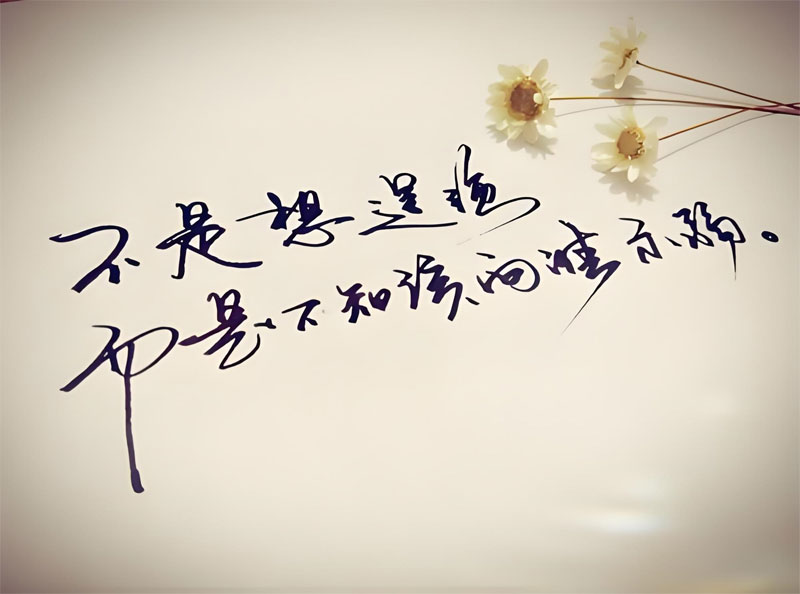 不是想逞强
而是不知该向谁示弱。